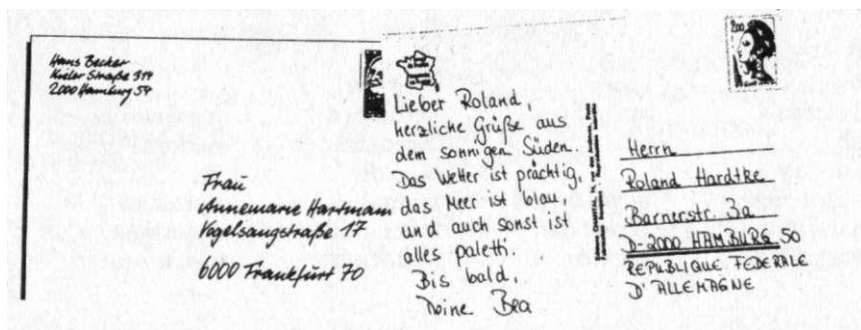 Hans Becker
Kieler Straße 319
2000 Hamburg 54
Frau
Annemarie Hartmann
Vogelsangstraße 17
6000 Frankfurt 70
Lieber Roland,
herzliche Grüße aus
dem sonnigen Süden.
Das Wetter ist prächtig,
das Meer ist blau
und auch sonst ist
alles paletti.
Bis bald,
Deine Bea
Herrn
Roland Hardtke
Barnerstr. 3a
D-2000 HAMBURG 50
REPUBLIQUE FEDERALE
D'ALLEMAGNE